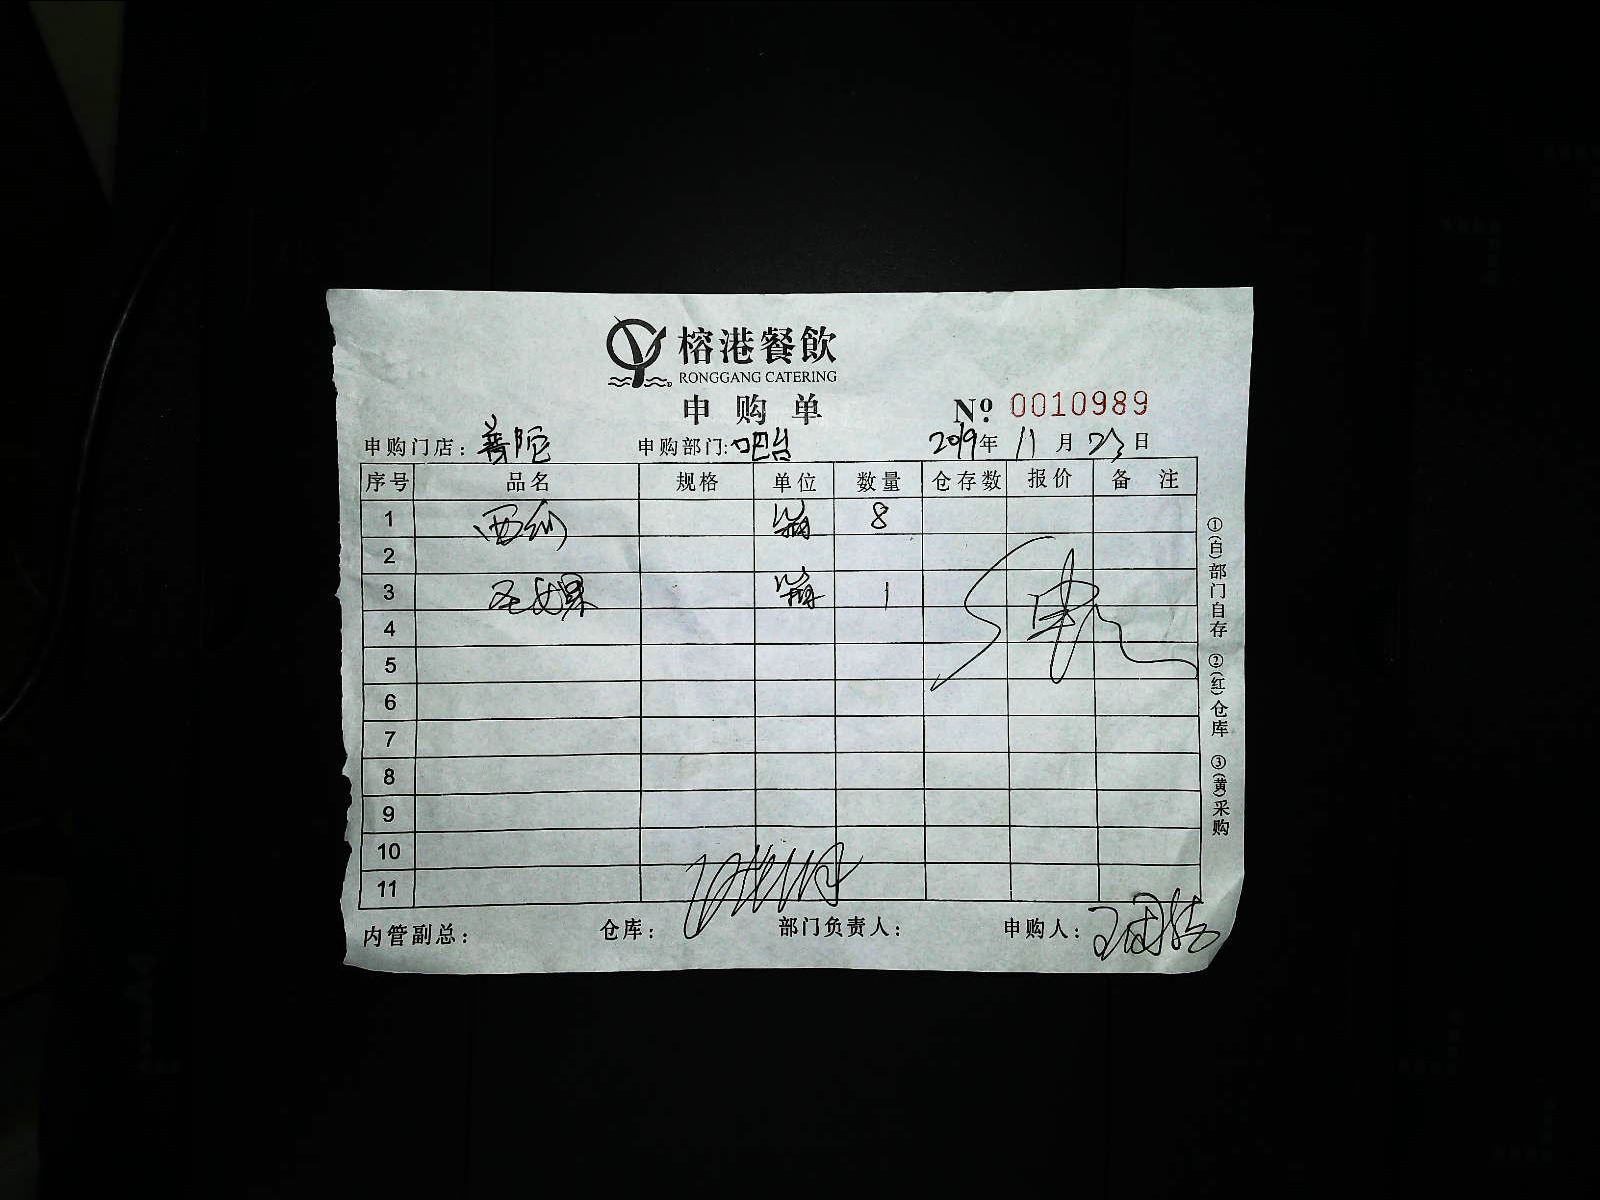 榕港餐飲
RONGGANG CATERING
申购单
№ 0010989
申购门店：普陀 申购部门：吧台 2019年11月23日
序号 品名 规格 单位 数量 仓存数 报价 备注
1 西 箱 8
2
3 箱 1
4
5
6
7
8
9
10
11
内管副总： 仓库： 部门负责人： 申购人：
①(白)部门自存 ②(红)仓库 ③(黄)采购